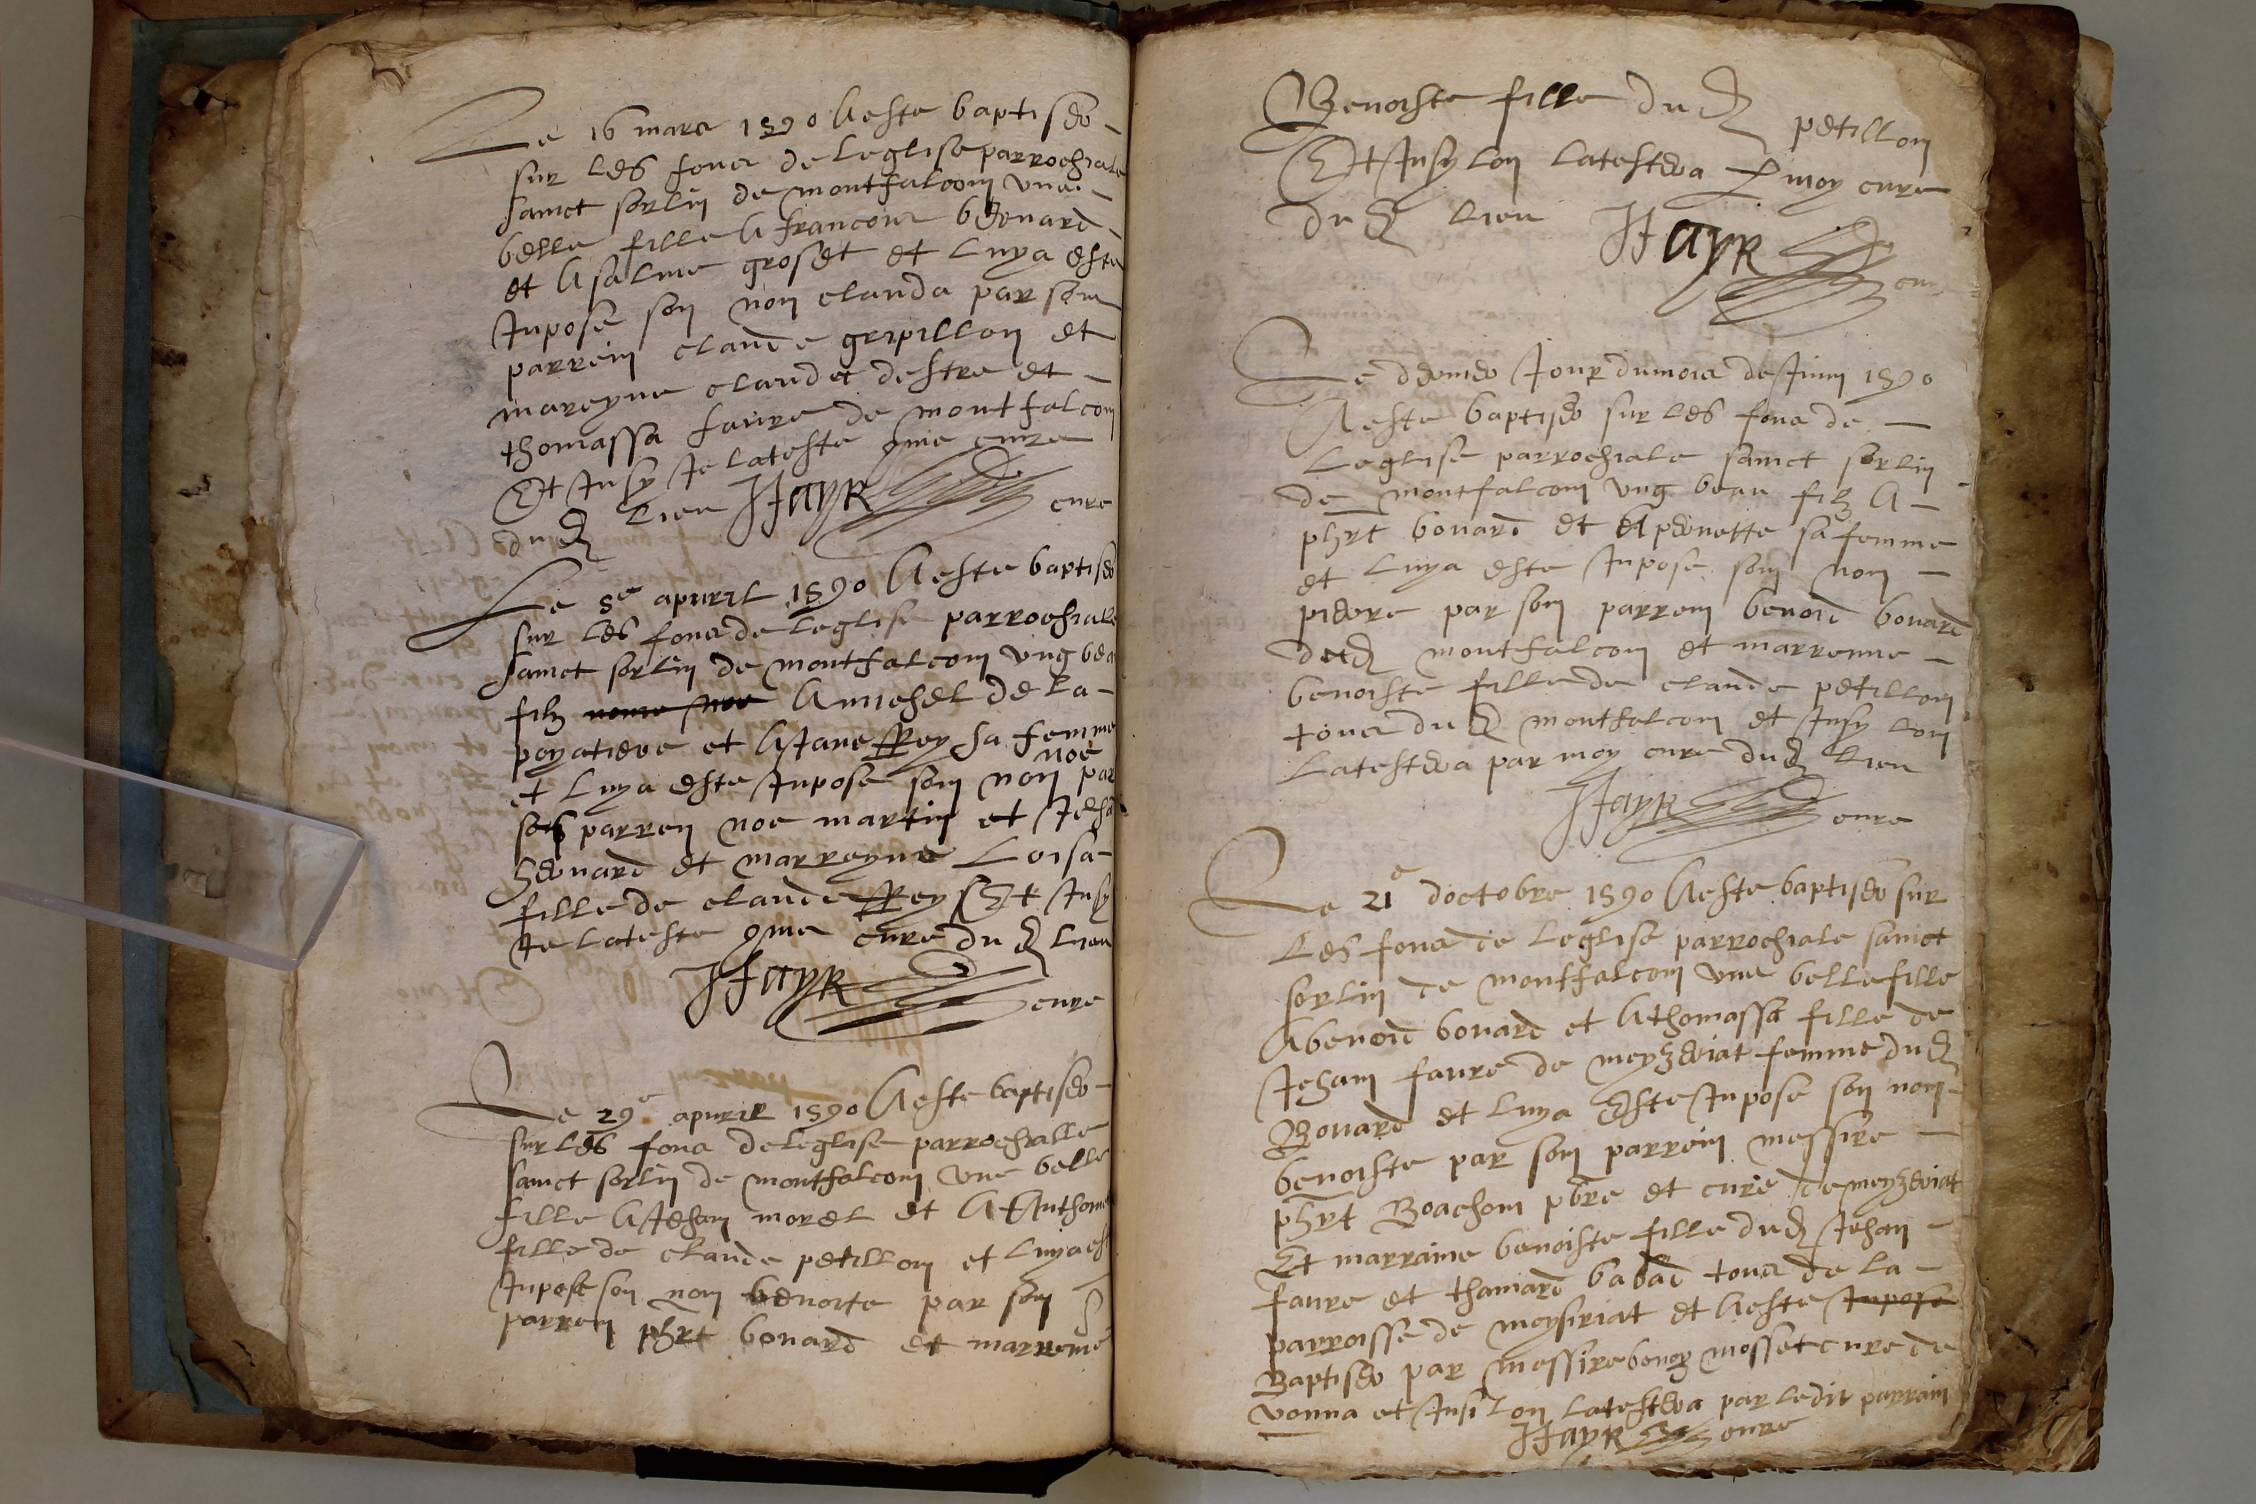 Le 16 mars 1590 A este baptiseo
sur les fons de leglise parrochiale
sainct sorlin de montfalcon une
belle fille A francois bouard
et A saline groset et luy a este
Inpose son non clauda par son
parrein claude gripillon et
mareyne claudet destre et
thomassa faure de montfalcon
Et Insy Je lateste cure
dud lieu HayR cure
Le 8e apvril 1590 A este baptiseo
sur les fons de leglise parrochiale
sainct sorlin de montfalcon ung beau
filz A michel de la
poyatiere et A Jane Rey sa femme
noe
et luy a este Inpose son non par
son parren noe martin et Jehan
et marreyne Loisa
fille de claude Rey Et Insy
Je lateste cure dud lieu
HayR cure
Le 29e apvril 1590 A este baptiseo
sur les fons de leglise parrochialle
sainct sorlin de montfalcon une belle
fille A Jehan morel et A Anthoine
fille de claude petillon et luy a est
Inpose son non benoite par son
parren phrt bouard et marreine
Benoiste fille dud petillon
Et Insy lon latestera p moy cure
dud lieu HayR cure
Le Jour du mois de Juin 1590
A este baptiseo sur les fons de
Leglise parrochiale sainct sorlin
de montfalcon ung beau filz A
phrt bouard et A peonette sa femme
et luy a este Inpose son non
pierre par son parrein benoid bouard
dud montfalcon et marrenne
benoiste fille de claude petillon
tous dud montfalcon et Insy lon
latestera par moy cure dud lieu
HayR cure
Le 21e doctobre 1590 A este baptiseo sur
Les fons de leglise parrochiale sainct
sorlin de montfalcon une belle fille
A benoid bouard et A thomassa fille de
Jehan faure de meyzeriat femme dud
Bouard et luy a Este Inpose son non
benoiste par son parrein messire
phrt Boachon pbre et cure de meyzeriat
Et marraine benoiste fille dud Jehan
faure et babad tous de la
parroisse de meysiriat et A este Inpose
Baptiseo par messire benoy mosset cure de
vonna et Insi lon latestera par ledit parrain
HayR cure